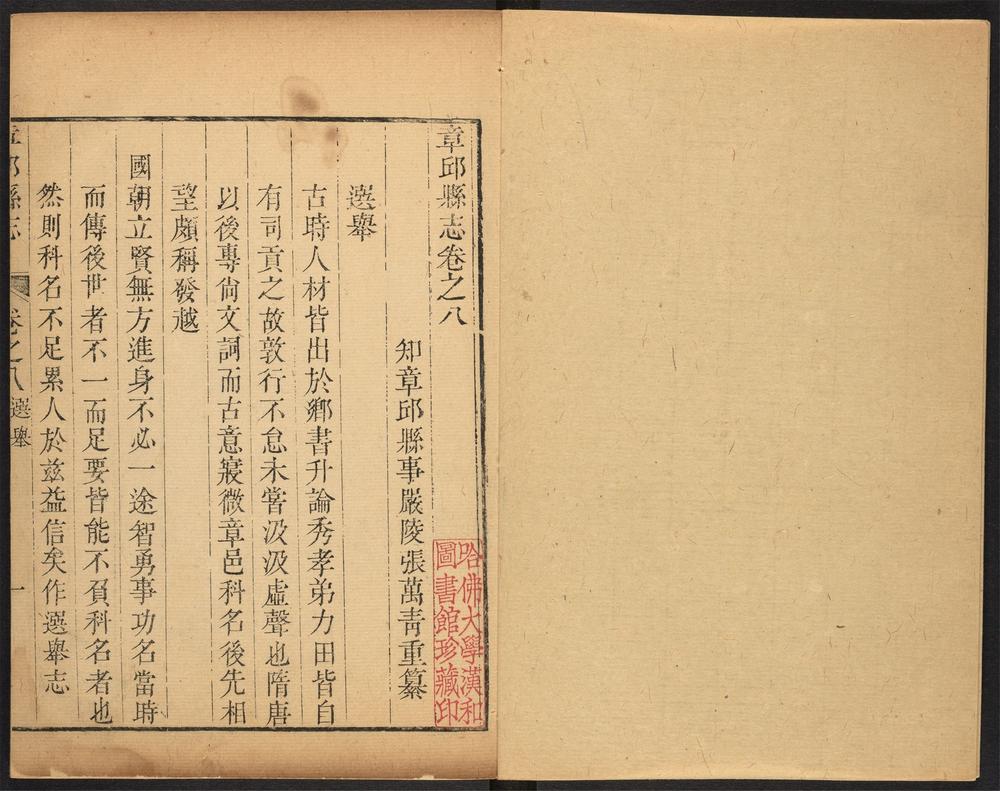 章邱縣志卷之八
知章邱縣事嚴陵張萬青重纂
選舉
古時人材皆出於鄉書升論秀孝弟力田皆自
有司貢之故敦行不怠未嘗汲汲虛聲也隋唐
以後專尚文詞而古意寖微章邑科名後先相
望頗稱發越
國朝立賢無方進身不必一途智勇事功名當時
而傳後世者不一而足要皆能不負科名者也
然則科名不足累人於茲益信矣作選舉志
章邱縣志 卷之八 選舉 一
哈佛大學漢和
圖書館珍藏印